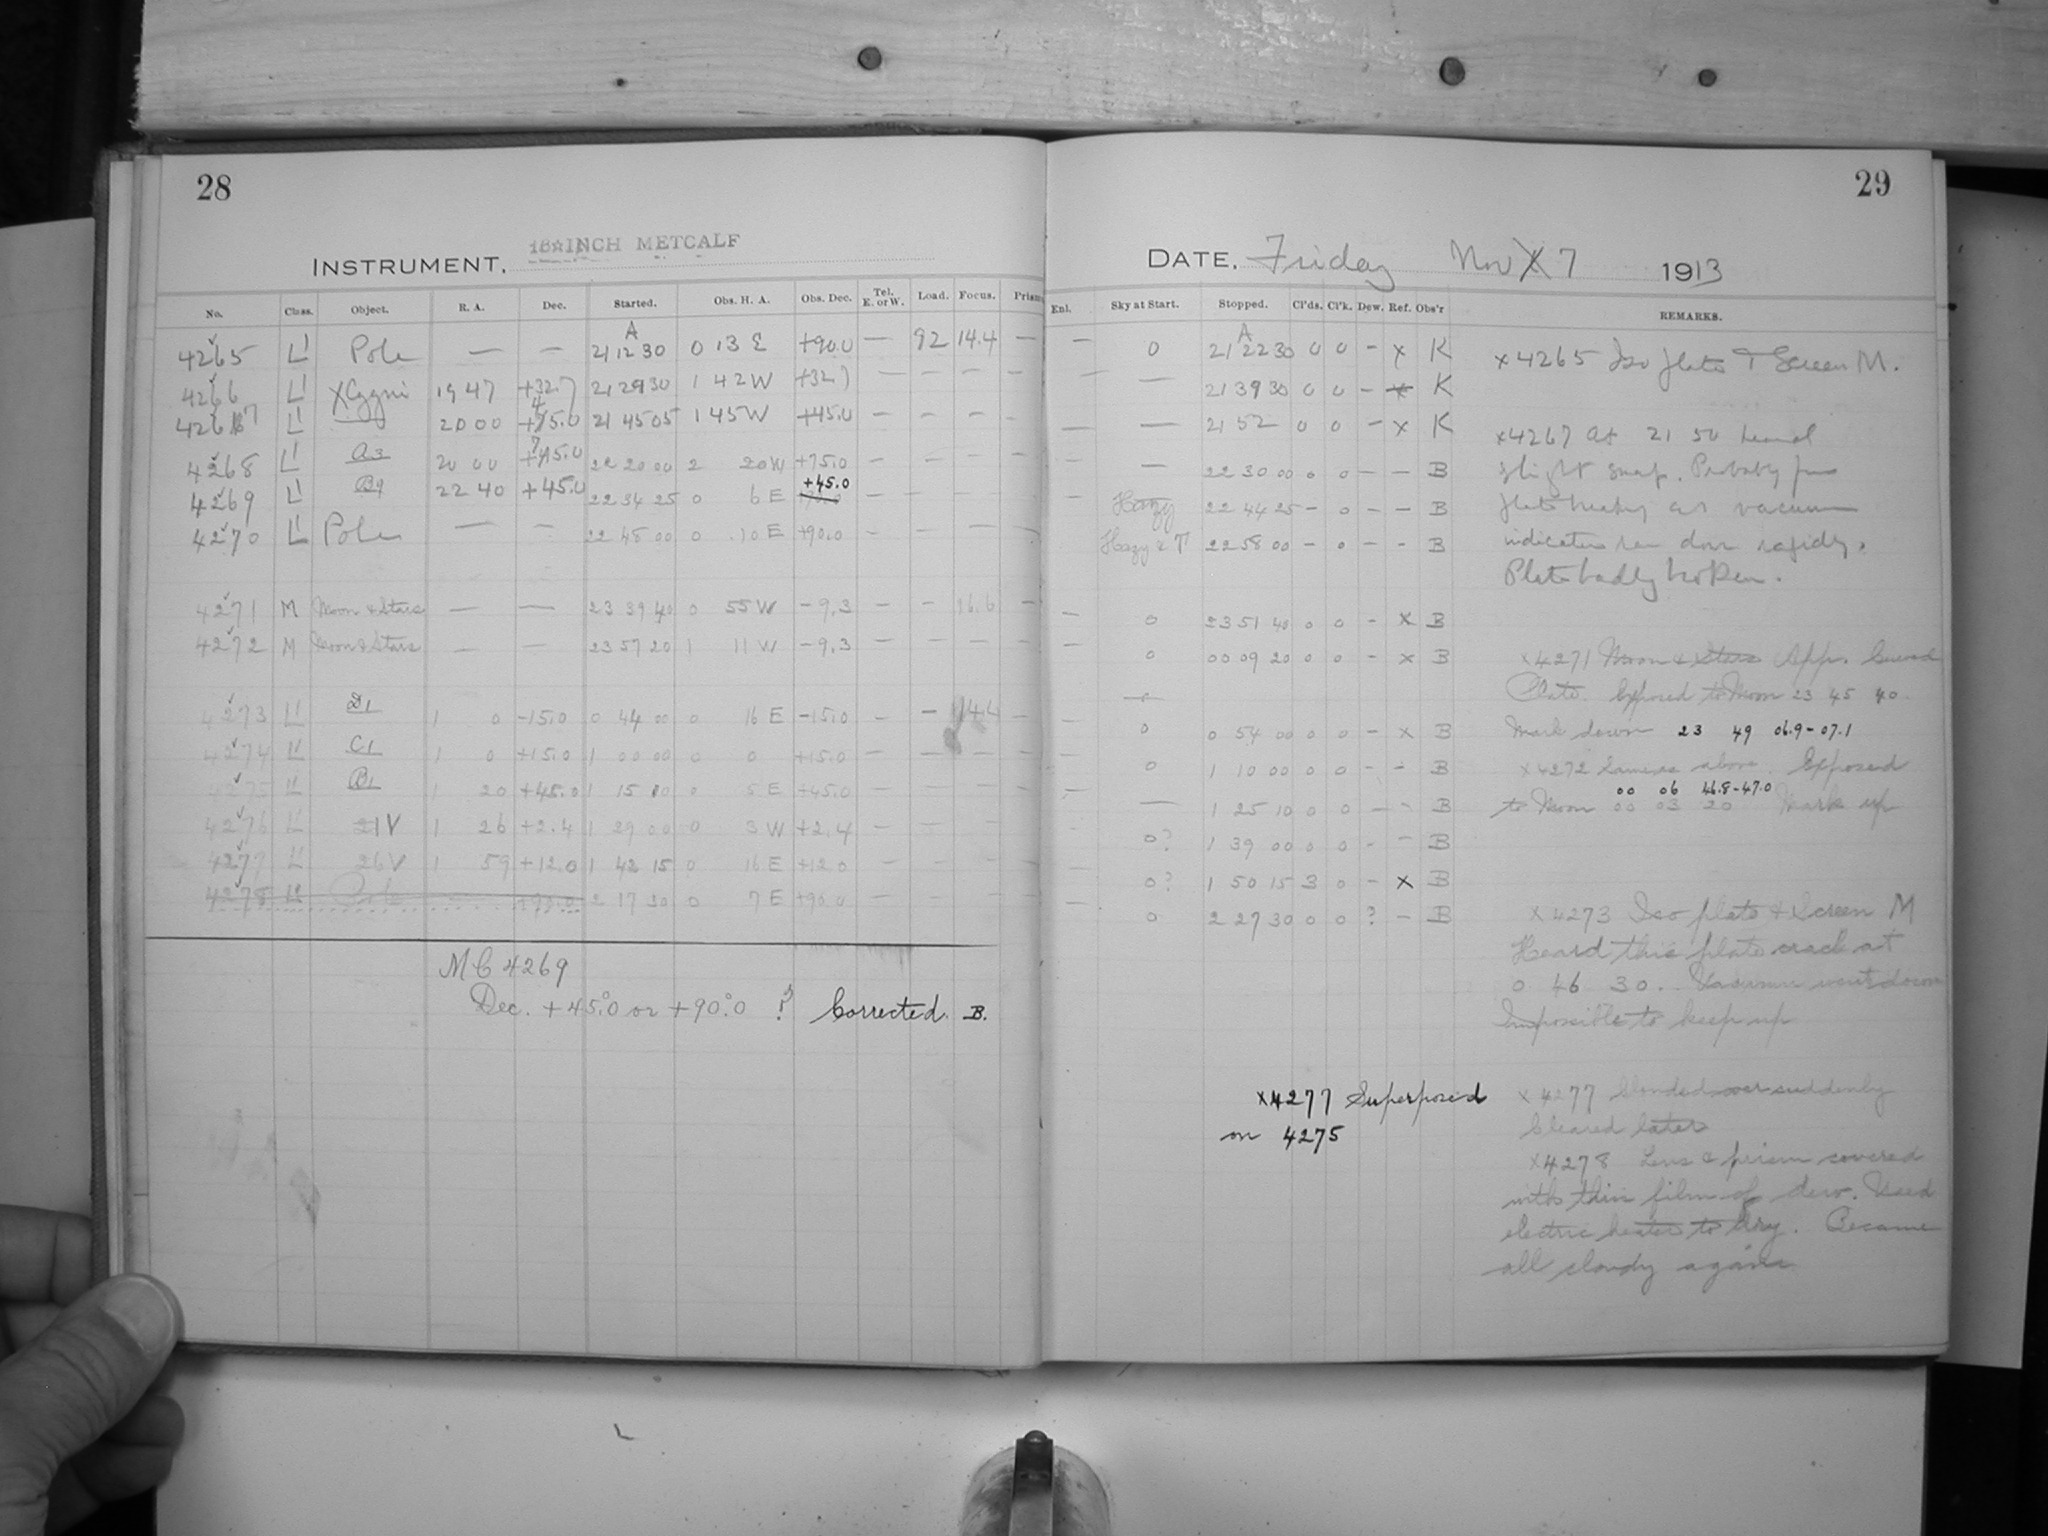 28
INSTRUMENT, 16 INCH METCALF
No. Class. Object. R. A. Dec. Started. Obs. H. A. Obs. Dec. Tel. E. or W. Load. Focus. Prism
4265 L Pole — — A 21 12 30 0 13 E +90.0 — 92 14.4 —
4266 L X Cygni 19 47 +32.7 21 29 30 1 42 W +32.7 — — — —
4267 L 20 00 +45.0 21 45 05 1 45 W +45.0 — — — —
4268 L A3 20 00 +75.0 22 20 00 2 20 W +75.0 — — — —
4269 L B9 22 40 +45.0 22 34 25 0 6 E +45.0 — — — —
4270 L Pole — — 22 48 00 0 10 E +90.0 — — — —
4271 M Moon & Stars — — 23 39 40 0 55 W -9.3 — — 16.6 —
4272 M Moon & Stars — — 23 57 20 1 11 W -9.3 — — — —
4273 L D1 1 0 -15.0 0 44 00 0 16 E -15.0 — — 14.4 —
4274 L C1 1 0 +15.0 1 00 00 0 0 +15.0 — — — —
4275 L B1 1 20 +45.0 1 15 10 0 5 E +45.0 — — — —
4276 L 21V 1 26 +2.4 1 29 00 0 3 W +2.4 — — — —
4277 L 26V 1 59 +12.0 1 42 15 0 16 E +12.0 — — — —
4278 L Pole — +90.0 2 17 30 0 7 E +90.0 — — — —
MC 4269
Dec. +45°.0 or +90°.0 ? Corrected. B.
29
DATE, Friday Nov 7 1913
Enl. Sky at Start. Stopped. Cl'ds. Cl'k. Dew. Ref. Obs'r REMARKS.
— 0 A 21 22 30 0 0 - x K
— — 21 39 30 0 0 - x K
— — 21 52 0 0 - x K
— 22 30 00 0 0 - - B
Hazy 22 44 25 - 0 - - B
Hazy & 22 58 00 - 0 - - B
— 0 23 51 40 0 0 - x B
— 0 00 09 20 0 0 - x B
— 0 0 54 00 0 0 - x B
— 0 1 10 00 0 0 - - B
— — 1 25 10 0 0 - - B
— 0? 1 39 00 0 0 - - B
— 0? 1 50 15 3 0 - x B
— 0 2 27 30 0 0 ? - B
x4265 Iso plate & Screen M.
x4267 At 21 50 heard
slight snap. Probably from
plate breaking as vacuum
indicator ran down rapidly.
Plate badly broken.
x4271 Moon & Stars App.
Plate. Exposed to Moon 23 45 40
Mark down 23 49 06.9-07.1
x4272 Same as above. Exposed
00 06 46.8-47.0
to Moon 00 03 20 Mark up
x4273 Iso plate & Screen M
Heard this plate crack at
0 46 30. Vacuum went down
Impossible to keep up
x4277 Superposed
on 4275
x4277 Clouded over suddenly
Cleared later
x4278 Lens & prism covered
with thin film of dew. Used
electric heater to dry. Became
all cloudy again